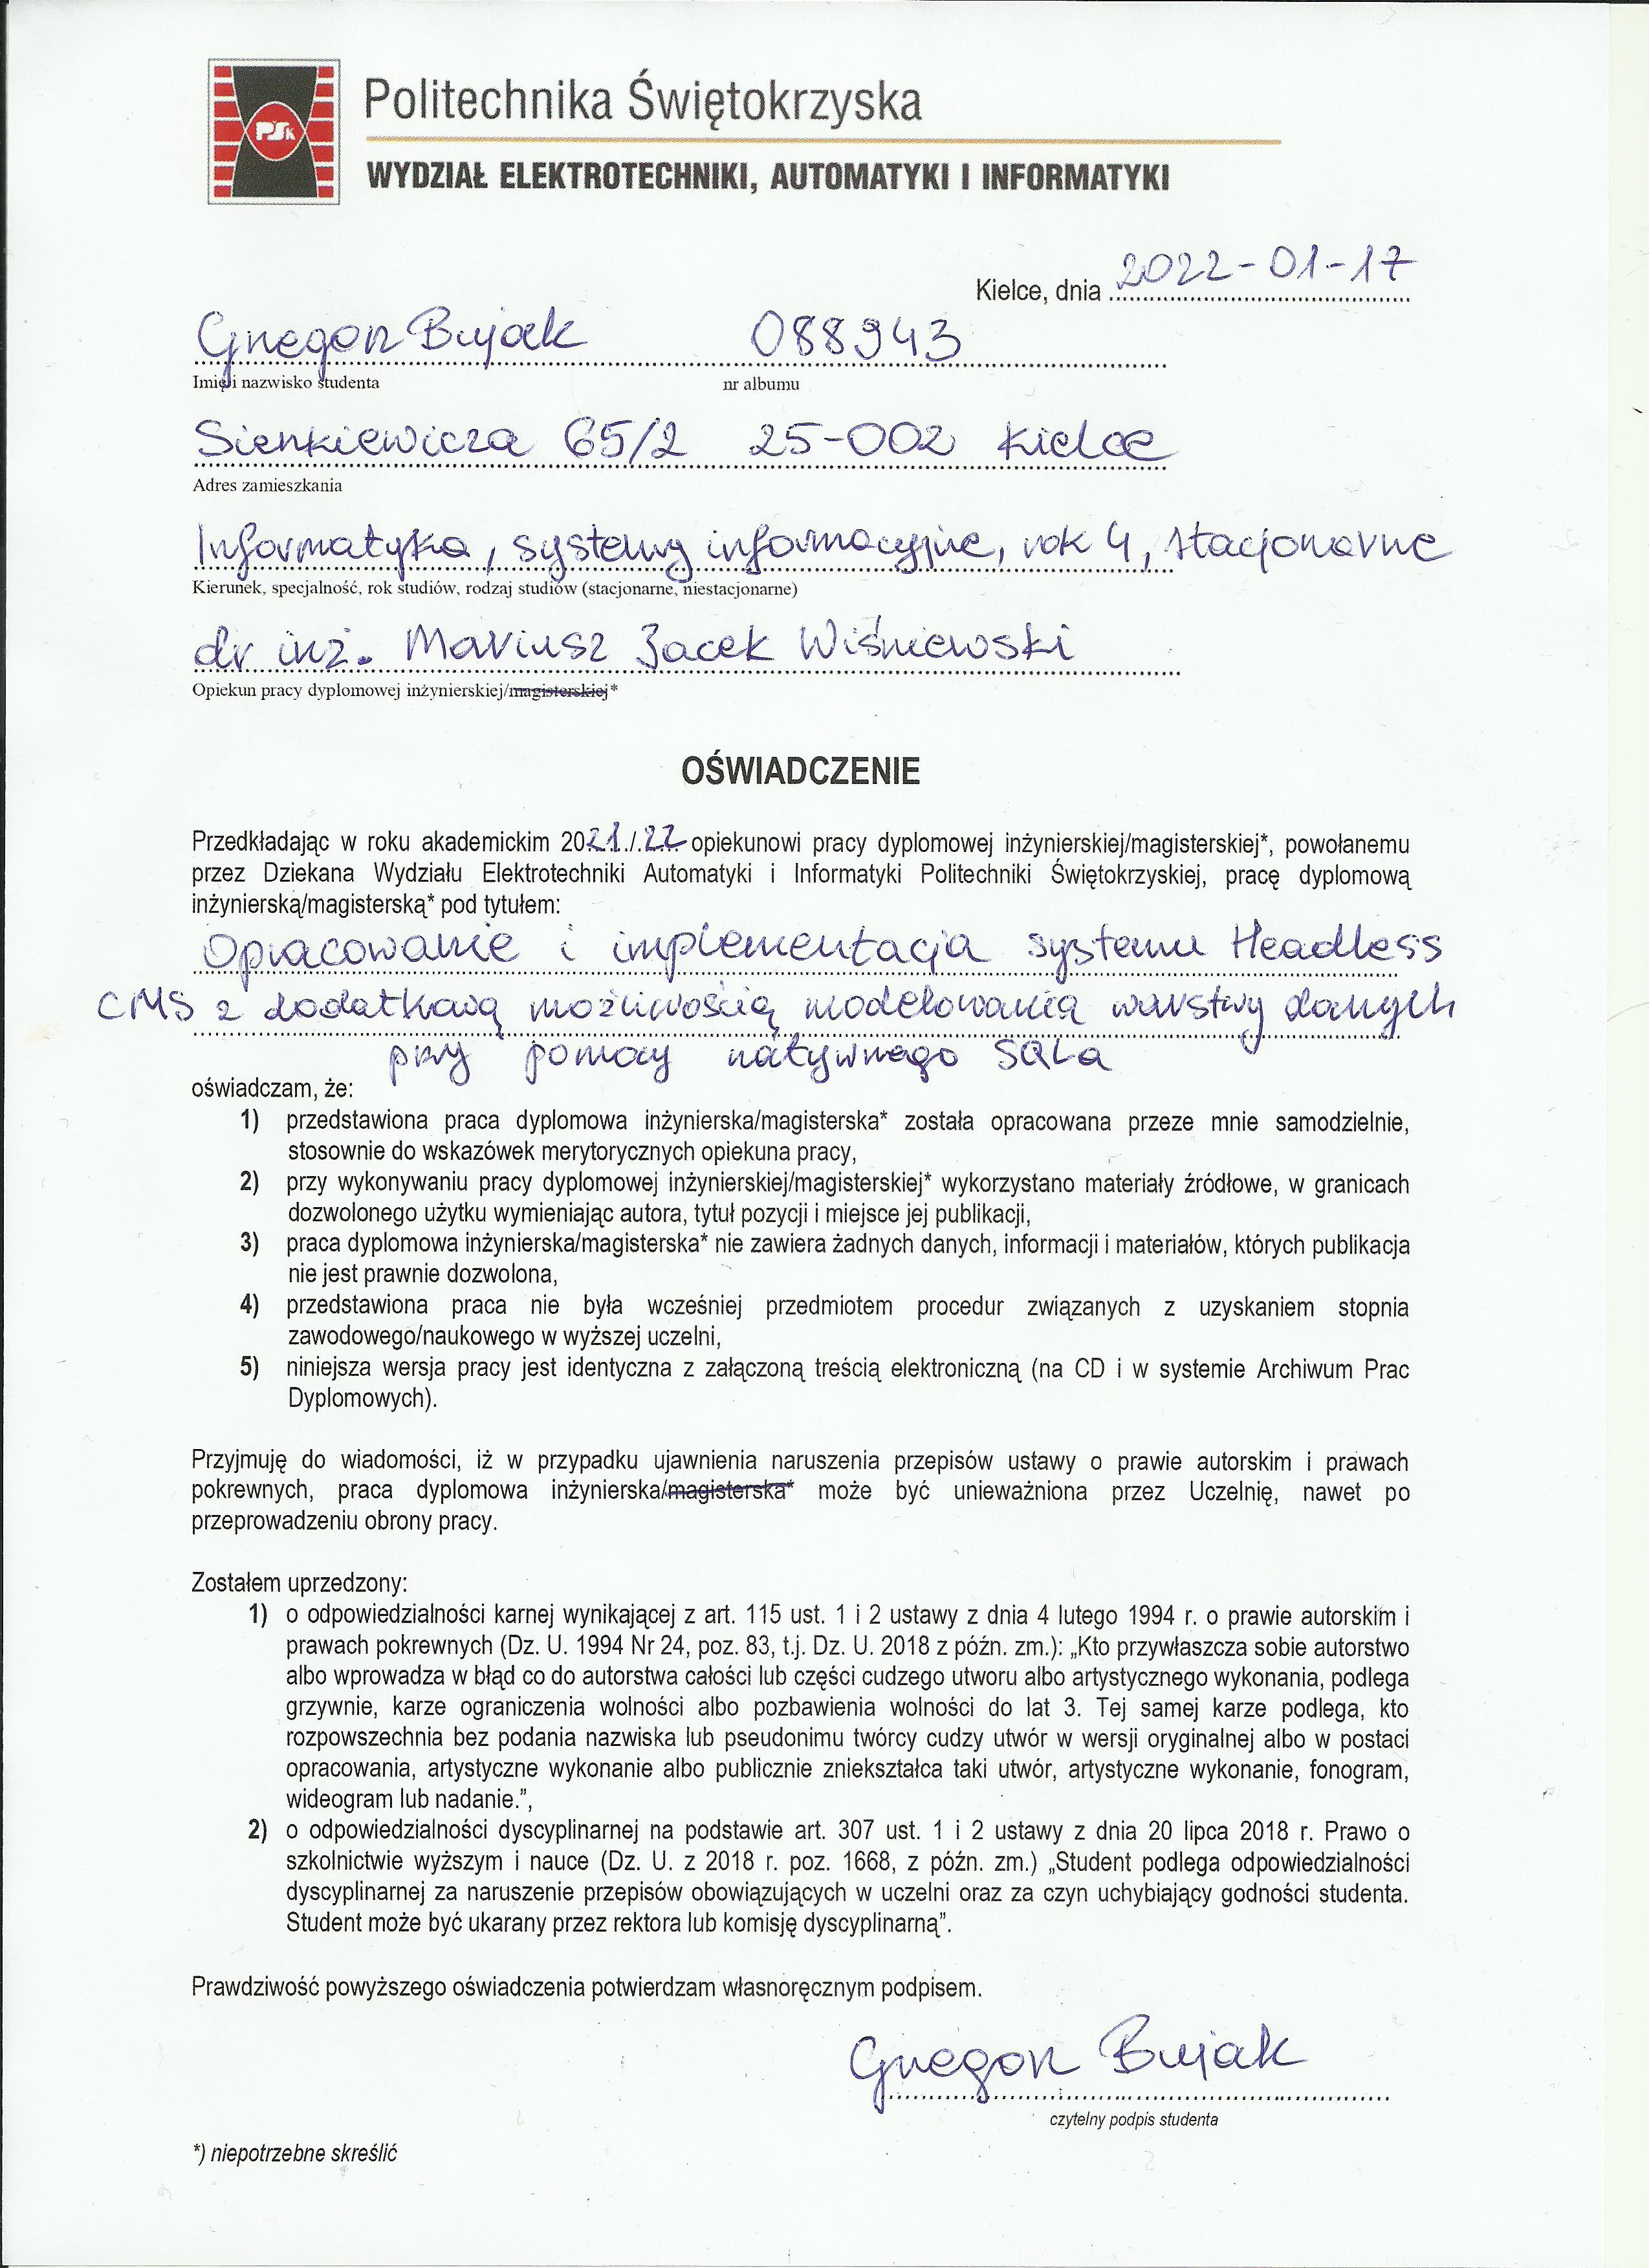 PŚk
Politechnika Świętokrzyska
WYDZIAŁ ELEKTROTECHNIKI, AUTOMATYKI I INFORMATYKI
Kielce, dnia 2022-01-17
Grzegorz Bujak 088943
Imię i nazwisko studenta nr albumu
Sienkiewicza 65/2 25-002 Kielce
Adres zamieszkania
Informatyka, systemy informacyjne, rok 4, stacjonarne
Kierunek, specjalność, rok studiów, rodzaj studiów (stacjonarne, niestacjonarne)
dr inż. Mariusz Jacek Wiśniewski
Opiekun pracy dyplomowej inżynierskiej/magisterskiej*
OŚWIADCZENIE
Przedkładając w roku akademickim 2021/22 opiekunowi pracy dyplomowej inżynierskiej/magisterskiej*, powołanemu
przez Dziekana Wydziału Elektrotechniki Automatyki i Informatyki Politechniki Świętokrzyskiej, pracę dyplomową
inżynierską/magisterską* pod tytułem:
Opracowanie i implementacja systemu Headless
CMS z dodatkową możliwością modelowania warstwy danych
przy pomocy natywnego SQLa
oświadczam, że:
1) przedstawiona praca dyplomowa inżynierska/magisterska* została opracowana przeze mnie samodzielnie,
stosownie do wskazówek merytorycznych opiekuna pracy,
2) przy wykonywaniu pracy dyplomowej inżynierskiej/magisterskiej* wykorzystano materiały źródłowe, w granicach
dozwolonego użytku wymieniając autora, tytuł pozycji i miejsce jej publikacji,
3) praca dyplomowa inżynierska/magisterska* nie zawiera żadnych danych, informacji i materiałów, których publikacja
nie jest prawnie dozwolona,
4) przedstawiona praca nie była wcześniej przedmiotem procedur związanych z uzyskaniem stopnia
zawodowego/naukowego w wyższej uczelni,
5) niniejsza wersja pracy jest identyczna z załączoną treścią elektroniczną (na CD i w systemie Archiwum Prac
Dyplomowych).
Przyjmuję do wiadomości, iż w przypadku ujawnienia naruszenia przepisów ustawy o prawie autorskim i prawach
pokrewnych, praca dyplomowa inżynierska/magisterska* może być unieważniona przez Uczelnię, nawet po
przeprowadzeniu obrony pracy.
Zostałem uprzedzony:
1) o odpowiedzialności karnej wynikającej z art. 115 ust. 1 i 2 ustawy z dnia 4 lutego 1994 r. o prawie autorskim i
prawach pokrewnych (Dz. U. 1994 Nr 24, poz. 83, t.j. Dz. U. 2018 z późn. zm.): „Kto przywłaszcza sobie autorstwo
albo wprowadza w błąd co do autorstwa całości lub części cudzego utworu albo artystycznego wykonania, podlega
grzywnie, karze ograniczenia wolności albo pozbawienia wolności do lat 3. Tej samej karze podlega, kto
rozpowszechnia bez podania nazwiska lub pseudonimu twórcy cudzy utwór w wersji oryginalnej albo w postaci
opracowania, artystyczne wykonanie albo publicznie zniekształca taki utwór, artystyczne wykonanie, fonogram,
wideogram lub nadanie.”,
2) o odpowiedzialności dyscyplinarnej na podstawie art. 307 ust. 1 i 2 ustawy z dnia 20 lipca 2018 r. Prawo o
szkolnictwie wyższym i nauce (Dz. U. z 2018 r. poz. 1668, z późn. zm.) „Student podlega odpowiedzialności
dyscyplinarnej za naruszenie przepisów obowiązujących w uczelni oraz za czyn uchybiający godności studenta.
Student może być ukarany przez rektora lub komisję dyscyplinarną”.
Prawdziwość powyższego oświadczenia potwierdzam własnoręcznym podpisem.
Grzegorz Bujak
czytelny podpis studenta
*) niepotrzebne skreślić